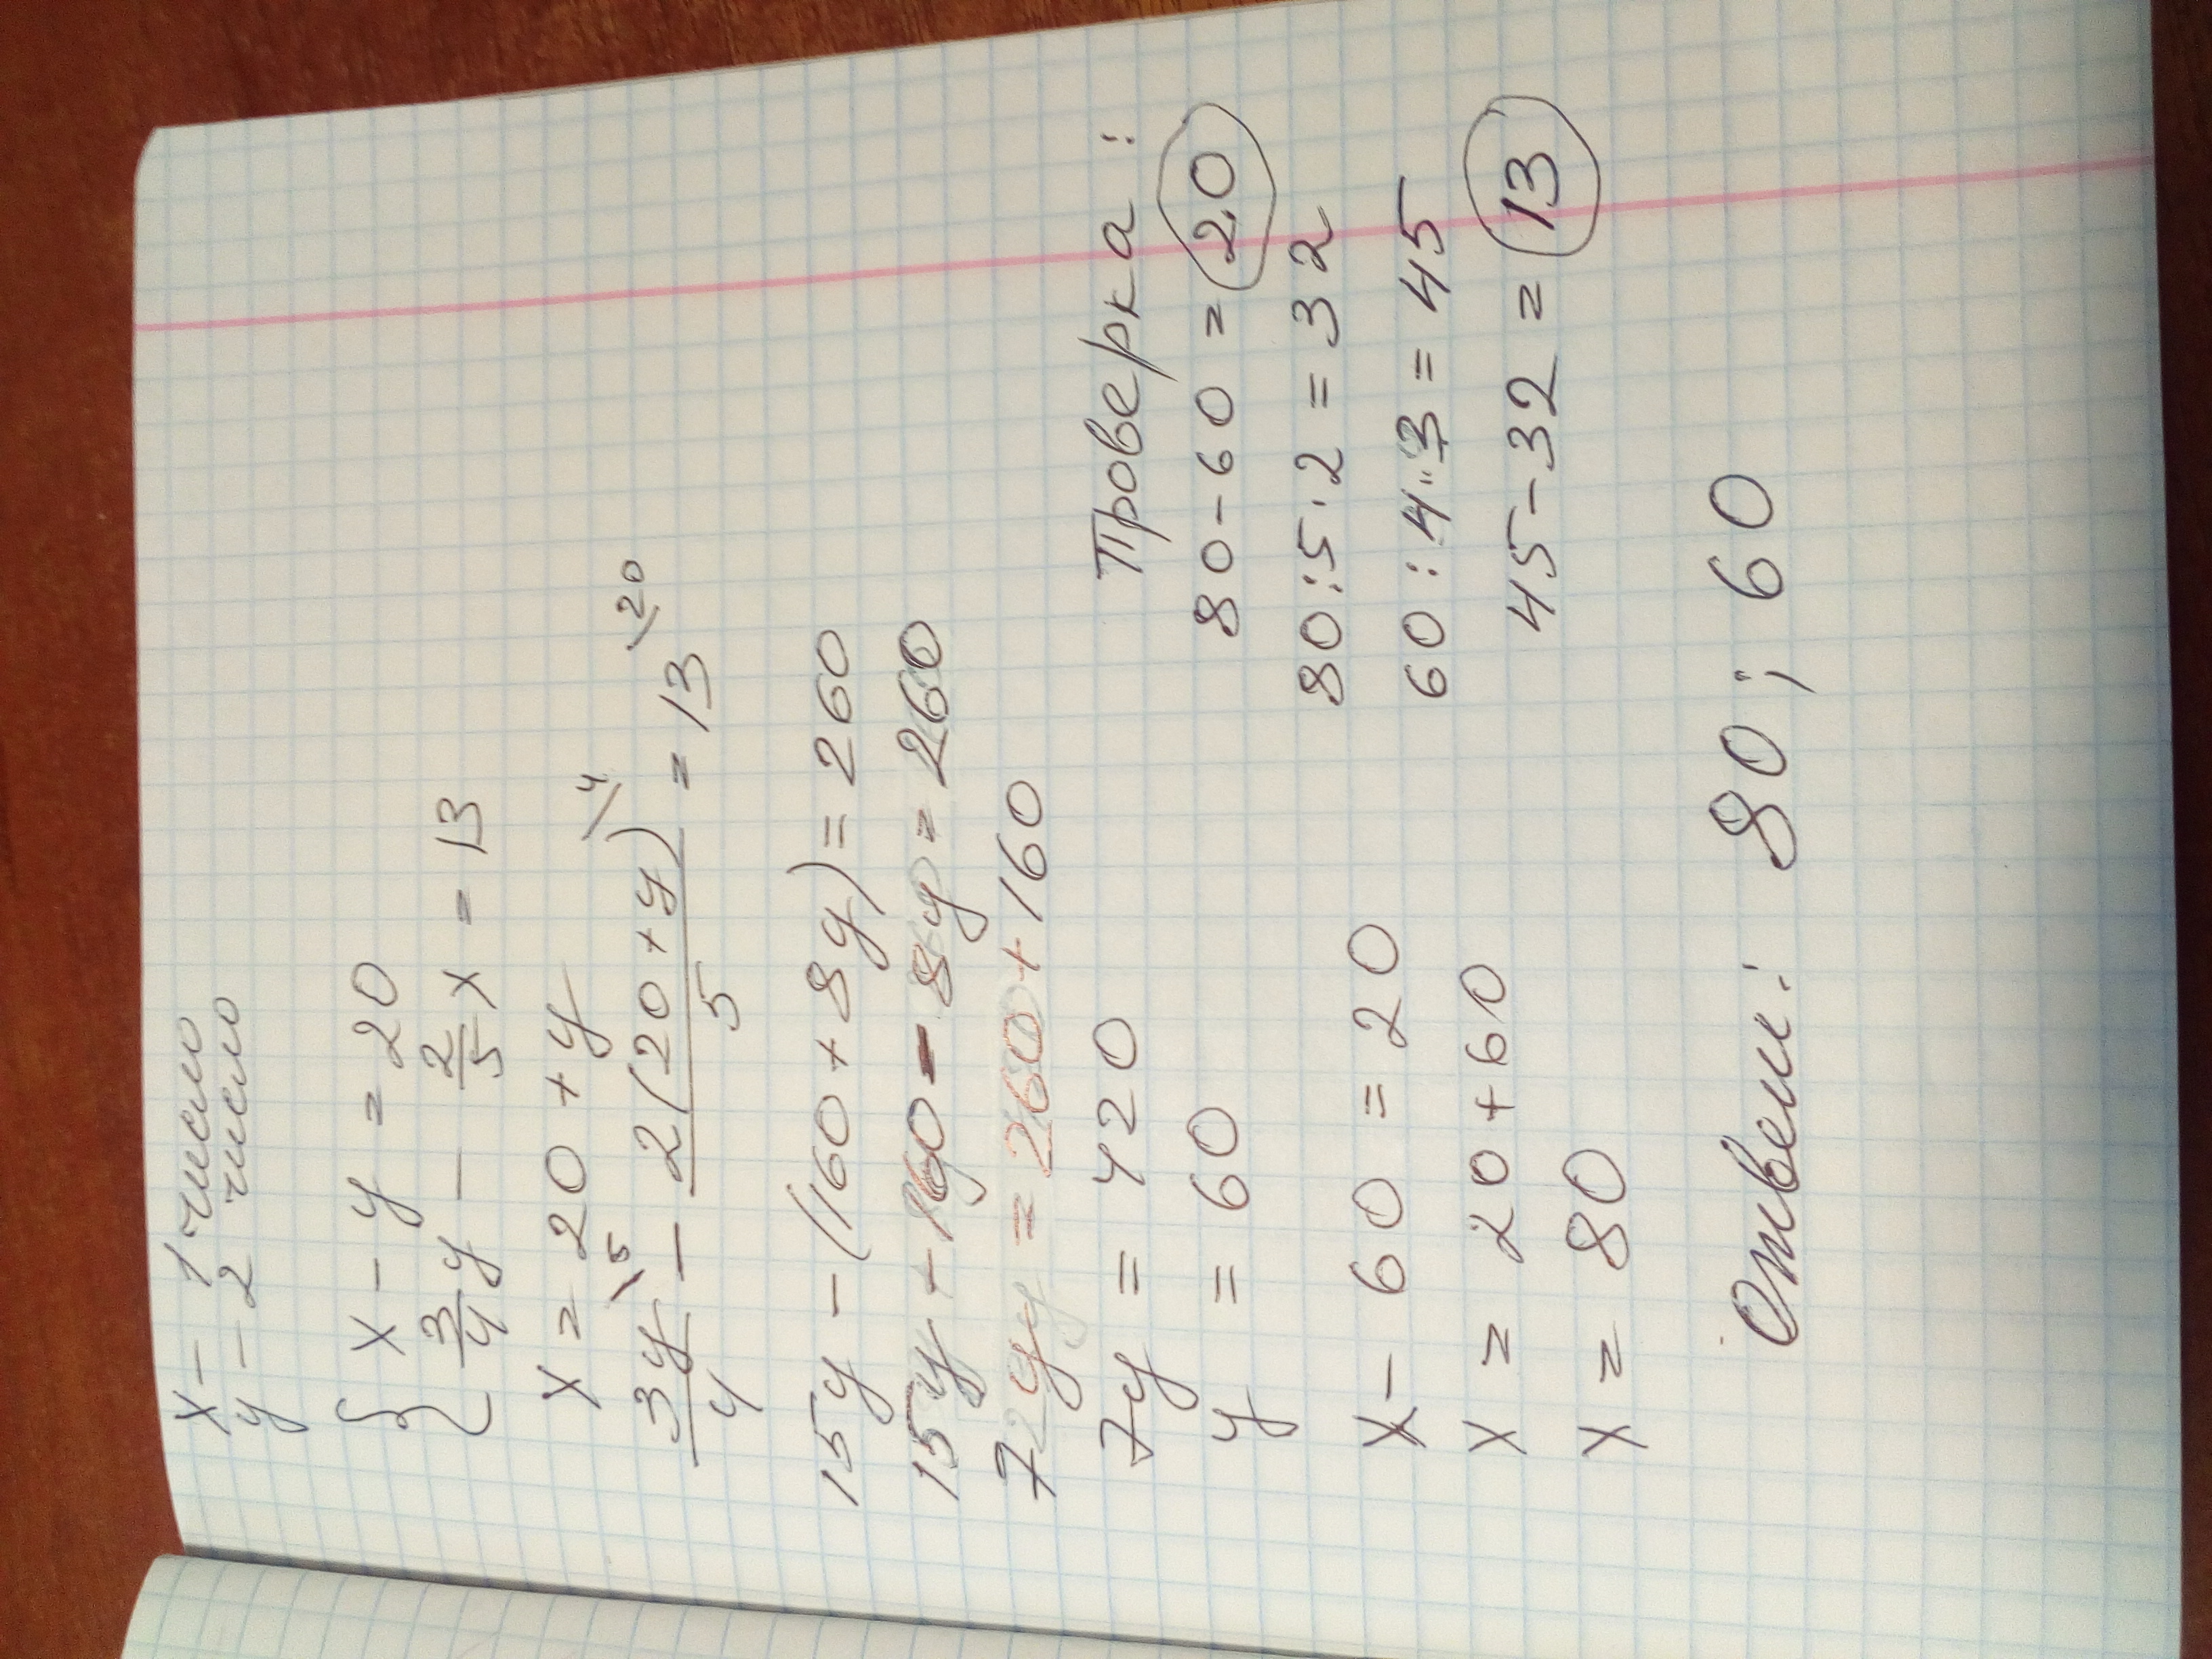 x - 1 число
y - 2 число
{ x - y = 20
3/4 y - 2/5 x = 13
x = 20 + y
3y/4 \5 - 2(20+y)/5 \4 = 13 \20
15y - (160 + 8y) = 260
15y - 160 - 8y = 260
7y = 260 + 160
7y = 420
y = 60
x - 60 = 20
x = 20 + 60
x = 80
Проверка:
80 - 60 = 20
80 : 5 · 2 = 32
60 : 4 · 3 = 45
45 - 32 = 13
Ответ: 80; 60